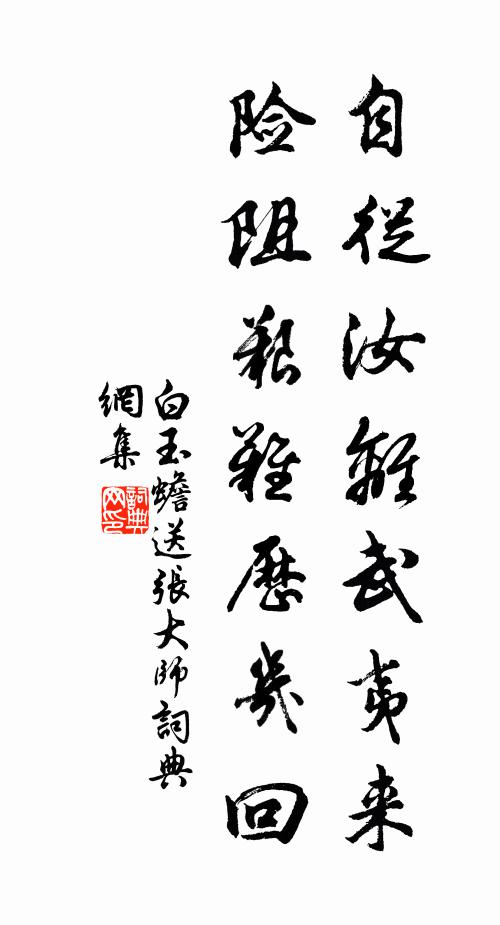 自從汝離武夷来
險阻艱難歷幾回
白玉蟾送張大師詞典
網集
詞典網印